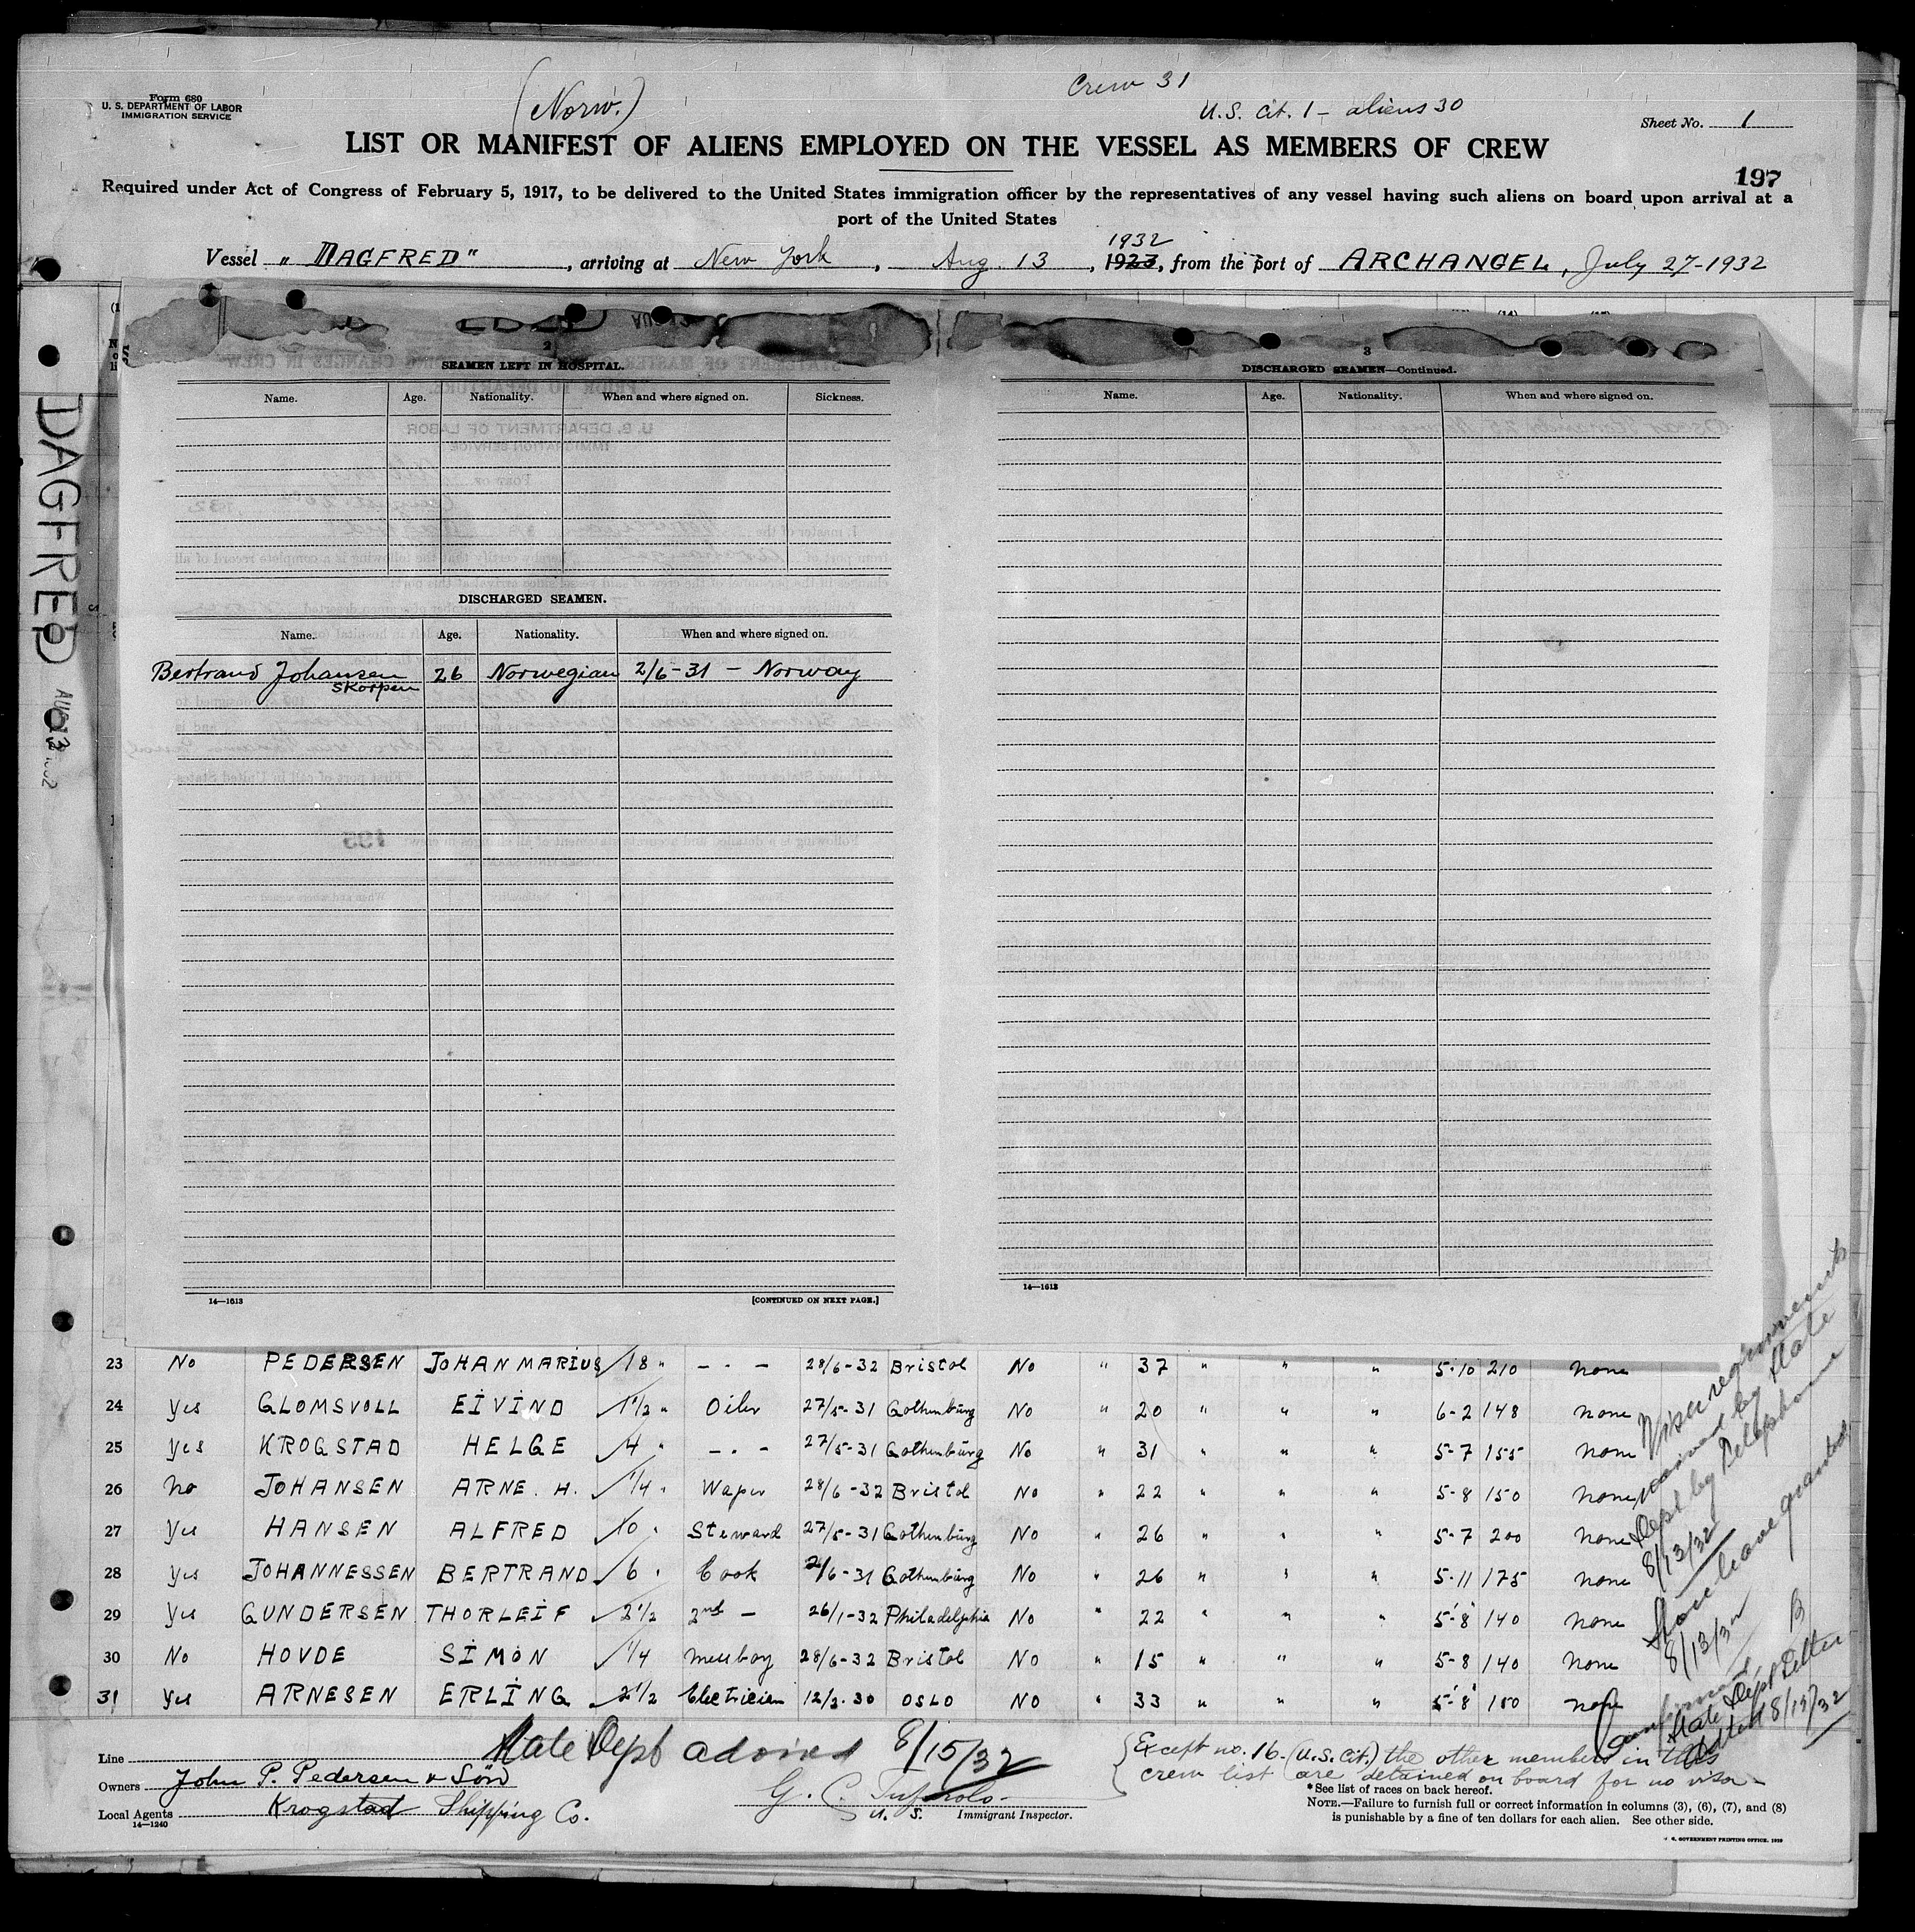 Form 680
U. S. DEPARTMENT OF LABOR
IMMIGRATION SERVICE
(Norw.)
Crew 31
U.S. Cit. 1 - aliens 30
Sheet No. 1
LIST OR MANIFEST OF ALIENS EMPLOYED ON THE VESSEL AS MEMBERS OF CREW
197
Required under Act of Congress of February 5, 1917, to be delivered to the United States immigration officer by the representatives of any vessel having such aliens on board upon arrival at a
port of the United States
1932
Vessel "DAGFRED", arriving at New York, Aug. 13, 1923, from the port of ARCHANGEL, July 27-1932
DAGFRED
AUG 13 1932
2
SEAMEN LEFT IN HOSPITAL.
Name. Age. Nationality. When and where signed on. Sickness.
DISCHARGED SEAMEN.
Name. Age. Nationality. When and where signed on.
Bertrand Johansen 26 Norwegian 2/6-31 - Norway
Skorpen
14—1613
[CONTINUED ON NEXT PAGE.]
3
DISCHARGED SEAMEN—Continued.
Name. Age. Nationality. When and where signed on.
14—1613
23 No PEDERSEN JOHAN MARIUS 18 " - . - 28/6-32 Bristol No " 37 " " " 5-10 210 none
24 Yes GLOMSVOLL EIVIND 1 1/2 " Oiler 27/5-31 Gothenburg No " 20 " " " 6-2 148 none
25 Yes KROGSTAD HELGE 4 " - . - 27/5-31 Gothenburg No " 31 " " " 5-7 155 none
26 No JOHANSEN ARNE. H. 1/4 " Wiper 28/6-32 Bristol No " 22 " " " 5-8 150 none
27 Yes HANSEN ALFRED 10 " Steward 27/5-31 Gothenburg No " 26 " " " 5-7 200 none
28 Yes JOHANNESSEN BERTRAND 6 " Cook 2/6-31 Gothenburg No " 26 " " " 5-11 175 none
29 Yes GUNDERSEN THORLEIF 2 1/2 2nd - 26/1-32 Philadelphia No " 22 " " " 5-8 140 none
30 No HOVDE SIMON 1/4 Messboy 28/6-32 Bristol No " 15 " " " 5-8 140 none
31 Yes ARNESEN ERLING 2 1/2 Electrician 12/2.30 OSLO No " 33 " " " 5-8 150 none
Visa requirements
waived by State
Dept by Telephone
8/13/32
Shore leave granted
8/13/32
confirmed
State Dept Letter
dated 8/15/32
State Dept advised 8/15/32
{Except no. 16 - (U.S. Cit.) the other members in this
crew list are detained on board for no visa -
Line
Owners John P. Pedersen & Sön
Local Agents Krogstad Shipping Co.
14—1240
U. S. Immigrant Inspector.
*See list of races on back hereof.
NOTE.—Failure to furnish full or correct information in columns (3), (6), (7), and (8)
is punishable by a fine of ten dollars for each alien. See other side.